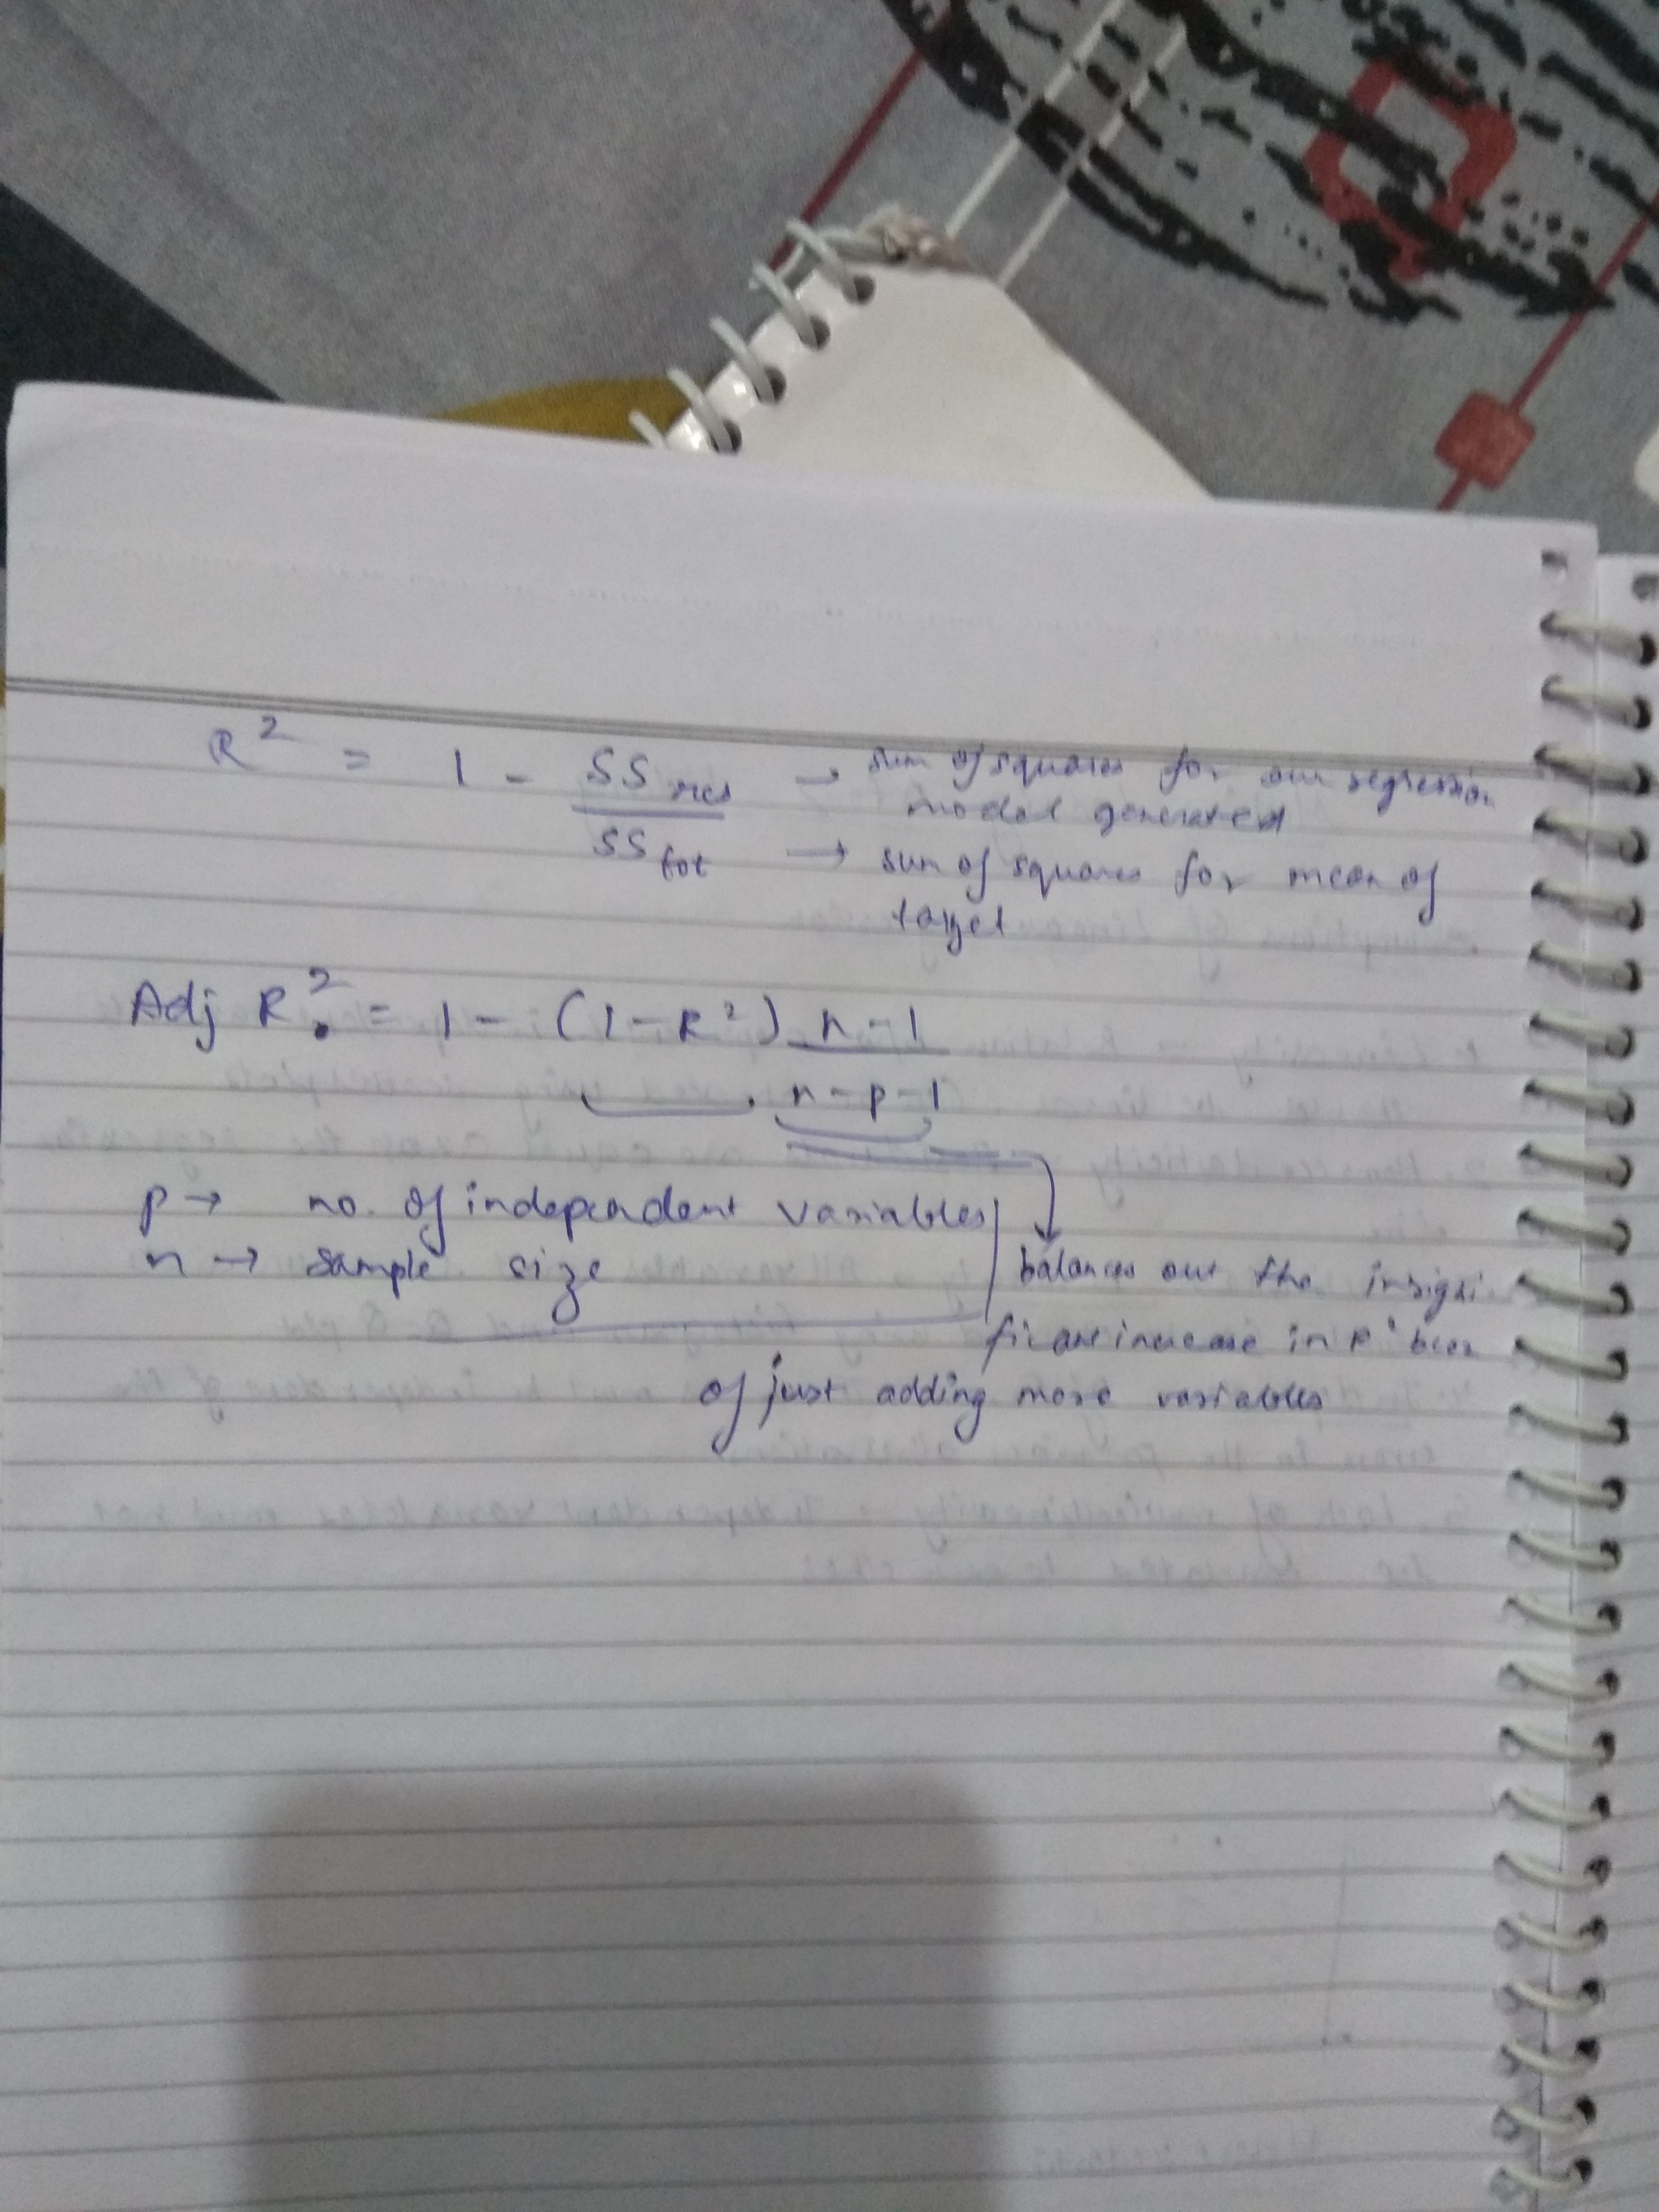 R² = 1 - SS res → sum of squares for our regression
model generated
SS tot → sum of squares for mean of
target
Adj R² = 1 - (1 - R²) n - 1
n - p - 1
p → no. of independent variables
n → sample size
balances out the insigni
ficant increase in R² bcoz
of just adding more variables